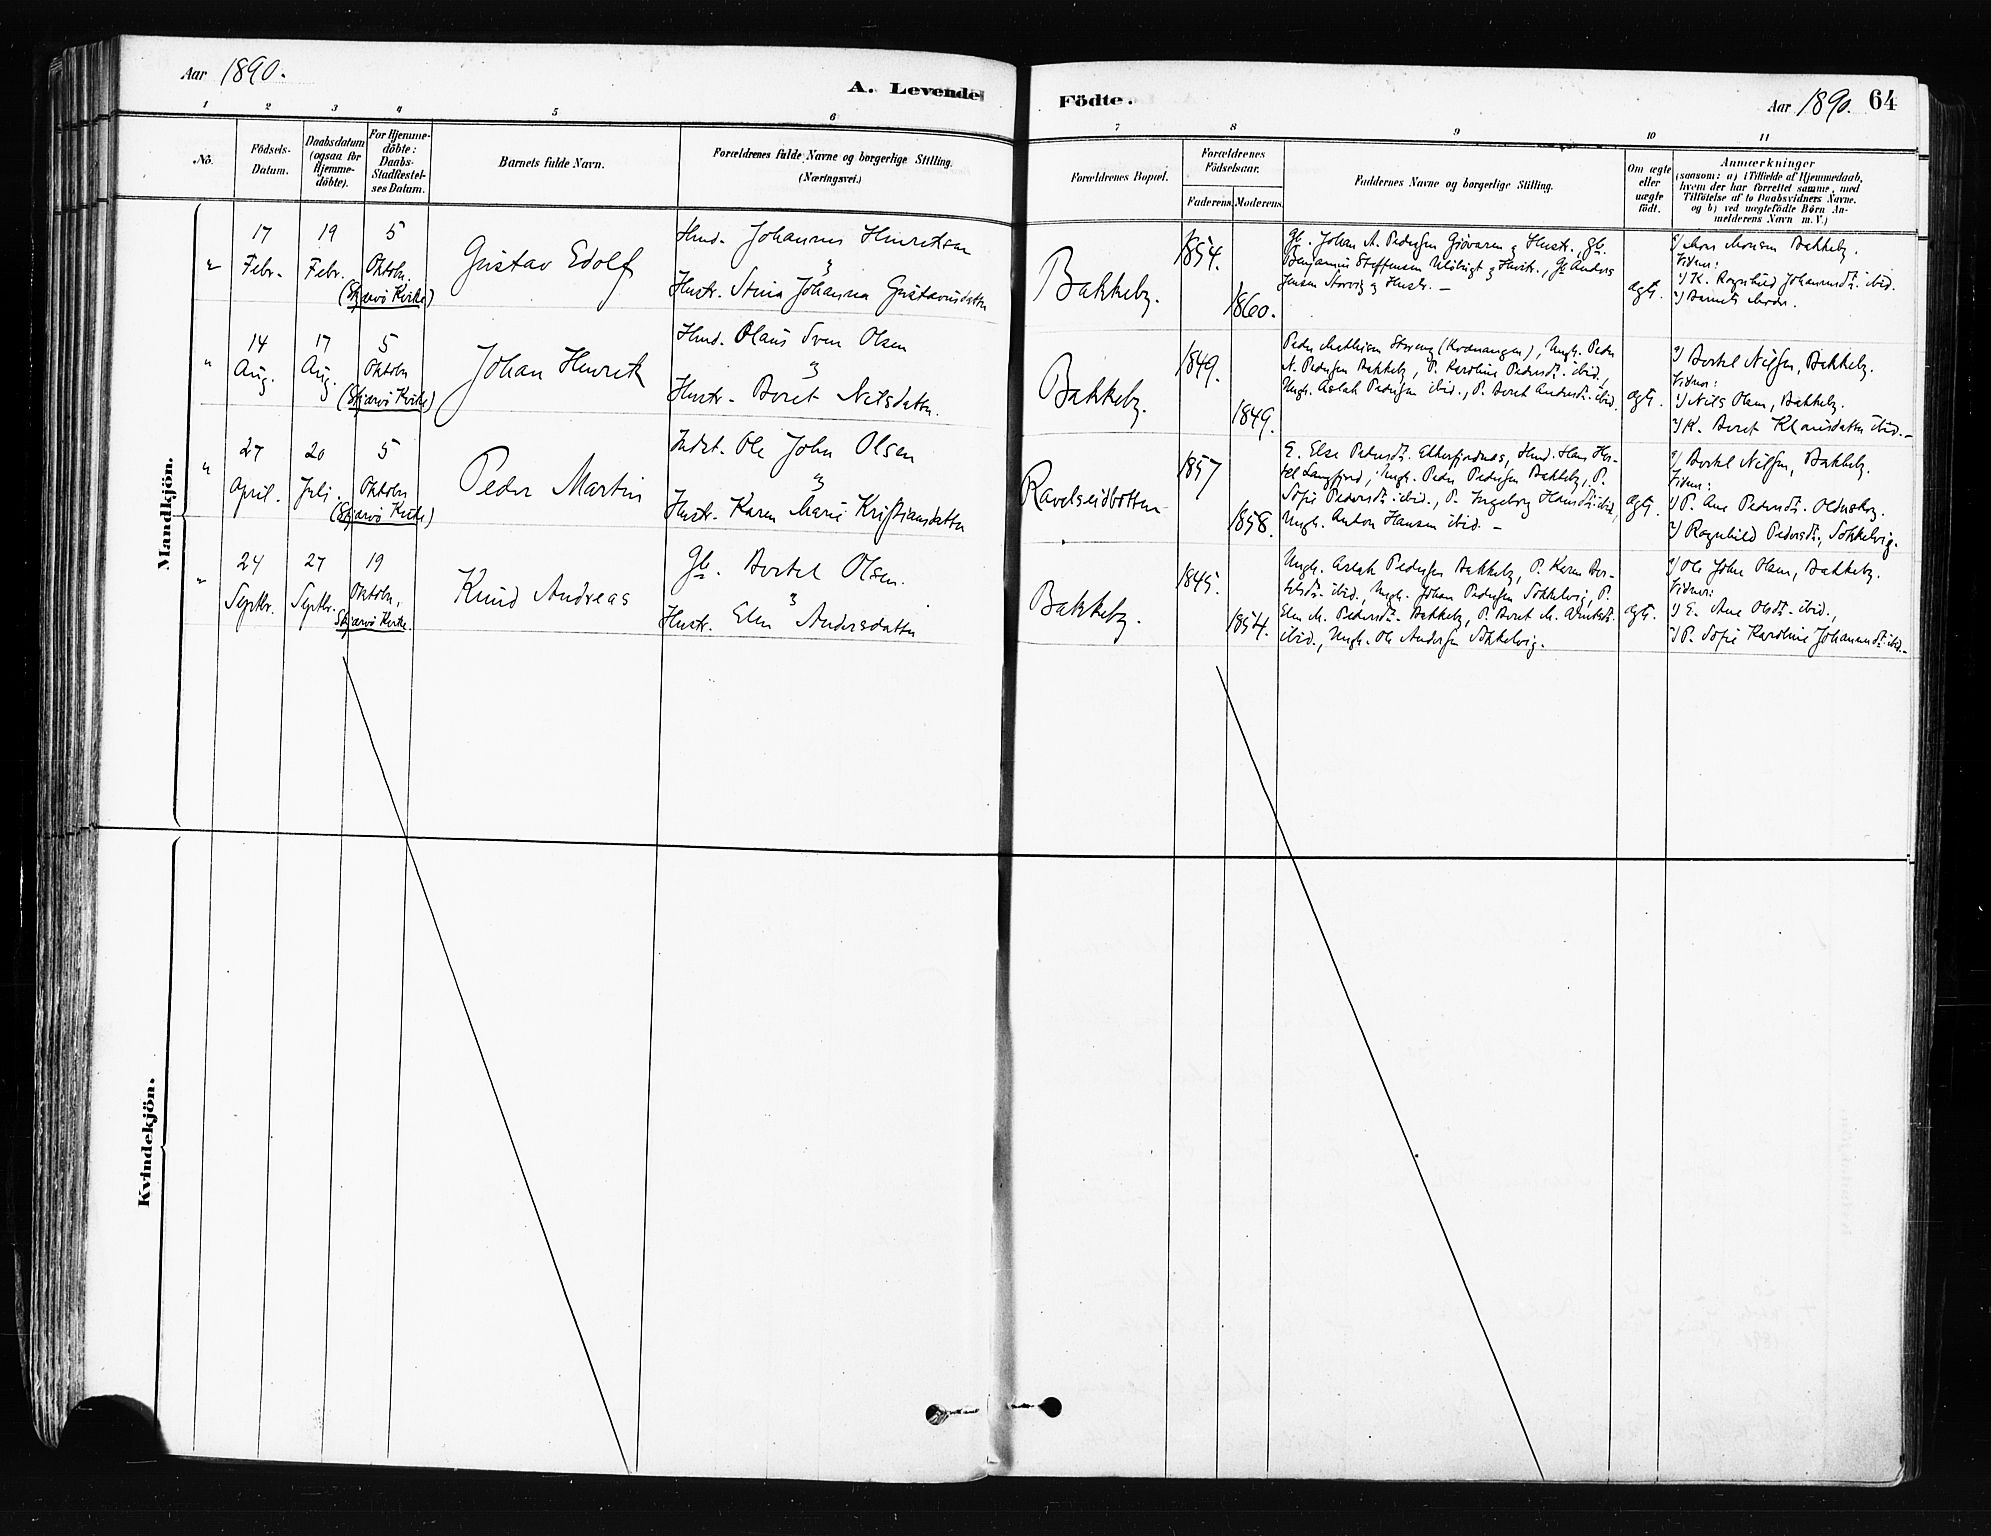 Aar 1890.
A. Levende
Födte.
Aar 1890. 64
1 2 3 4 5 6
7 8 9 10 11
No.
Födsels-
Datum.
Daabsdatum
(ogsaa for
Hjemme-
döbte).
For Hjemme-
döbte:
Daabs-
Stadfæstel-
ses Datum.
Barnets fulde Navn.
Forældrenes fulde Navne og borgerlige Stilling.
(Næringsvei.)
Forældrenes Bopæl.
Forældrenes
Födselsaar.
Faderens. Moderens.
Faddernes Navne og borgerlige Stilling.
Om ægte
eller
uægte
födt.
Anmærkninger
(saasom: a) i Tilfælde af Hjemmedaab,
hvem der har forrettet samme, med
Tilföielse af to Daabsvidners Navne.
og b) ved uægtefödte Börn An-
melderens Navn m. V.)
Mandkjön.
"
17
Febr.
19
Febr.
5
Oktobr.
(Skjærvö Kirke)
Gustav Edolf
Johannes Henriksen
Hustr. Stina Johanna Gustavusdatter
Bakkeby.
1854.
1860.
Gb. Johan A. Pedersen Giövaren og Hustr., Gb.
Benjamin Steffensen og Hustr., Gb Anders
Jensen Storvig og Hustr. –
ægte.
Mons Monsen Bakkeby.
Vidner:
1) K. Ragnhild Johannesdt. ibid.
2) Barnets Moder.
"
14
Aug.
17
Aug.
5
Oktobr
(Skjærvö Kirke)
Johan Henrik
Olaus Sven Olsen
Hustr. Beret Nilsdatter.
Bakkeby.
1849.
1849.
Peder Mathisen (Kvænangen), Ungk. Peder
N. Pedersen Bakkeby, P. Karoline Pedersdt. ibid.,
Ungk. Aslak Pedersen ibid., P. Beret Andersdt. ibid.
ægte.
Bertel Nilsen, Bakkeby.
Vidner:
1) Nils Olsen, Bakkeby.
2) K. Beret Klausdatter ibid. –
"
27
April.
20
Juli.
5
Oktobr
(Skjærvö Kirke)
Peder Martin
Indst. Ole John Olsen
Hustr. Karen Marie Kristiansdatter
Ravelseidbotten
1857
1858.
E. Else Pedersdt. Hans
Langfjord, Ungk. Peder Pedersen Bakkeby, P.
Sofie Pedersdt. ibid., P. Ingeborg Hansdt. ibid.,
Ungk. Anton Hansen ibid. –
ægte.
Bertel Nilsen, Bakkeby.
Vidner:
1) P. Ane Pedersdt. Olderskog.
2) Ragnhild Pedersdt., Sökkelvig.
"
24
Septbr.
27
Septbr.
19
Oktobr.
Skjærvö Kirke.
Knud Andreas
Gb. Bertel Olsen.
Hustr. Elen Andersdatter
Bakkeby.
1845.
1854.
Ungk. Aslak Pedersen Bakkeby, P. Karen Ber-
telsdt. ibid., Ungk. Johan Pedersen Sökkelvig, P.
Elen M. Pedersdt. Bakkeby, P. Beret M.
ibid., Ungk. Ole Andersen Sökkelvig.
ægte.
Ole John Olsen, Bakkeby.
Vidner:
1) E. Ane Olsdt. ibid.,
2) P. Sofie Karoline Johannesdt. ibid. –
Kvindekjön.